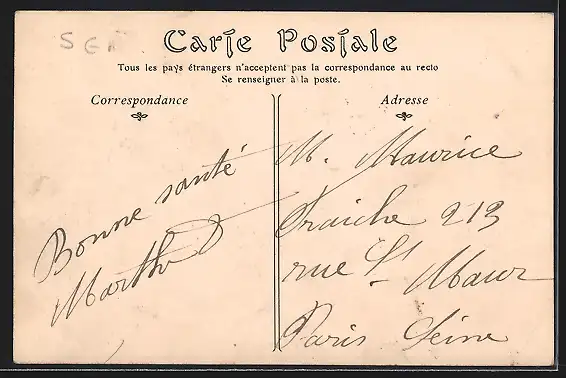 Carte Postale
Tous les pays étrangers n'acceptent pas la correspondance au recto
Se renseigner à la poste.
Correspondance
Adresse
Bonne santé
Marthe
M. Maurice
Fraiche 213
rue St Maur
Paris Seine